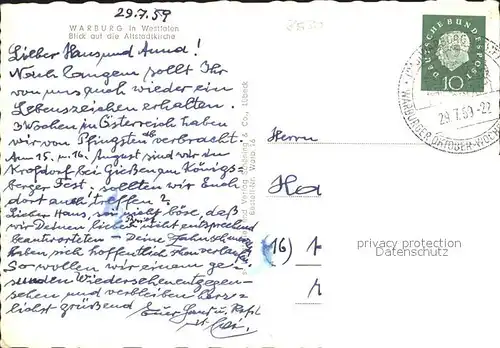 29.7.59
WARBURG in Westfalen
Blick auf die Altstadtkirche
Lieber Hans und Anna!
Nach langem sollt Ihr
von uns auch wieder ein
Lebenszeichen erhalten.
3 Wochen in Österreich haben
wir von Pfingsten ab verbracht.
Am 15. u. 16. August sind wir in
Krofdorf bei Gießen am Königs-
berger Fest, sollten wir Euch
dort auch treffen?
Lieber Hans, sei nicht böse, daß
wir Deinen lieben Brief nicht entsprechend
beantworteten – Deine Zahnschmerzen
haben sich hoffentlich schon verlaufen.
So wollen wir einem ge-
sunden Wiedersehen entgegen-
sehen und verbleiben herz-
lichst grüßend
Euer
Schöning & Co., Lübeck
Herrn
(16)
DEUTSCHE BUNDESPOST
10
29.7.59-22
WARBURGER OKTOBER-WOCHE
privacy protection
Datenschutz